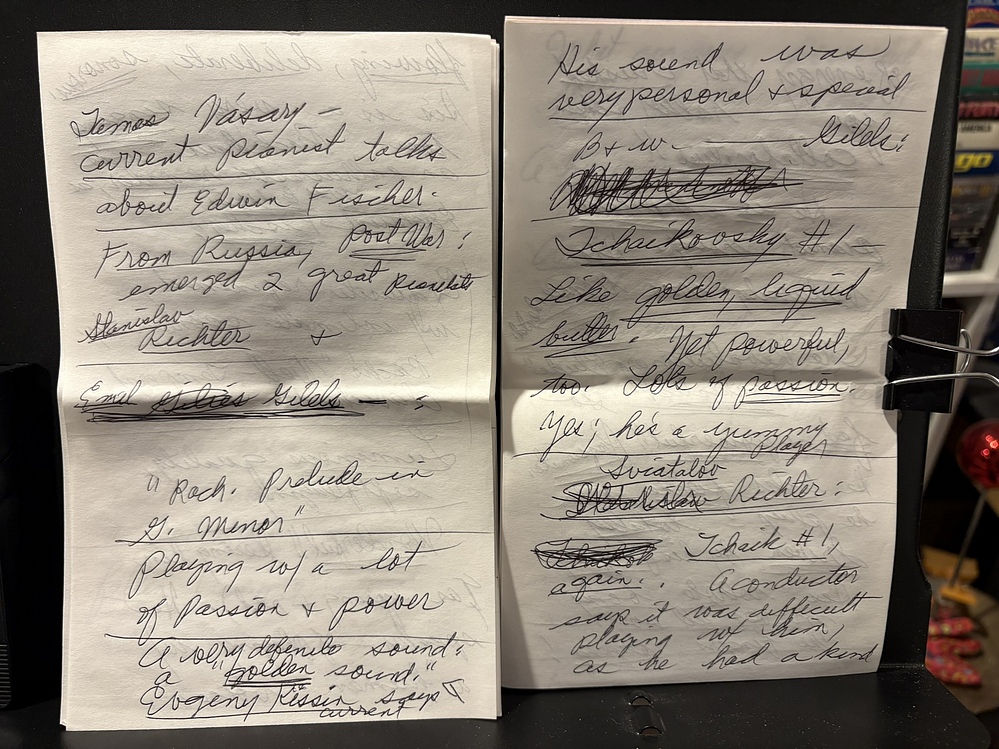 Tamas Vásary –
current pianist talks
about Edwin Fischer.
From Russia, Post War:
emerged 2 great pianists
Stanislav
Richter +
Emel Gilels – :
"Rach. Prelude in
G. Minor"
Playing w/ a lot
of Passion & power
A very definite sound:
a "golden sound."
Evgeny Kissin says
current
His sound was
very personal & special
B + W. Gilels:
Tchaikovsky #1 –
Like golden, liquid
butter. Yet powerful,
too. Lots of passion.
Yes; he's a yummy
Player
Sviatalov
Richter:
Tchaik #1,
again.. A conductor
says it was difficult
playing w/ him,
as he had a kind